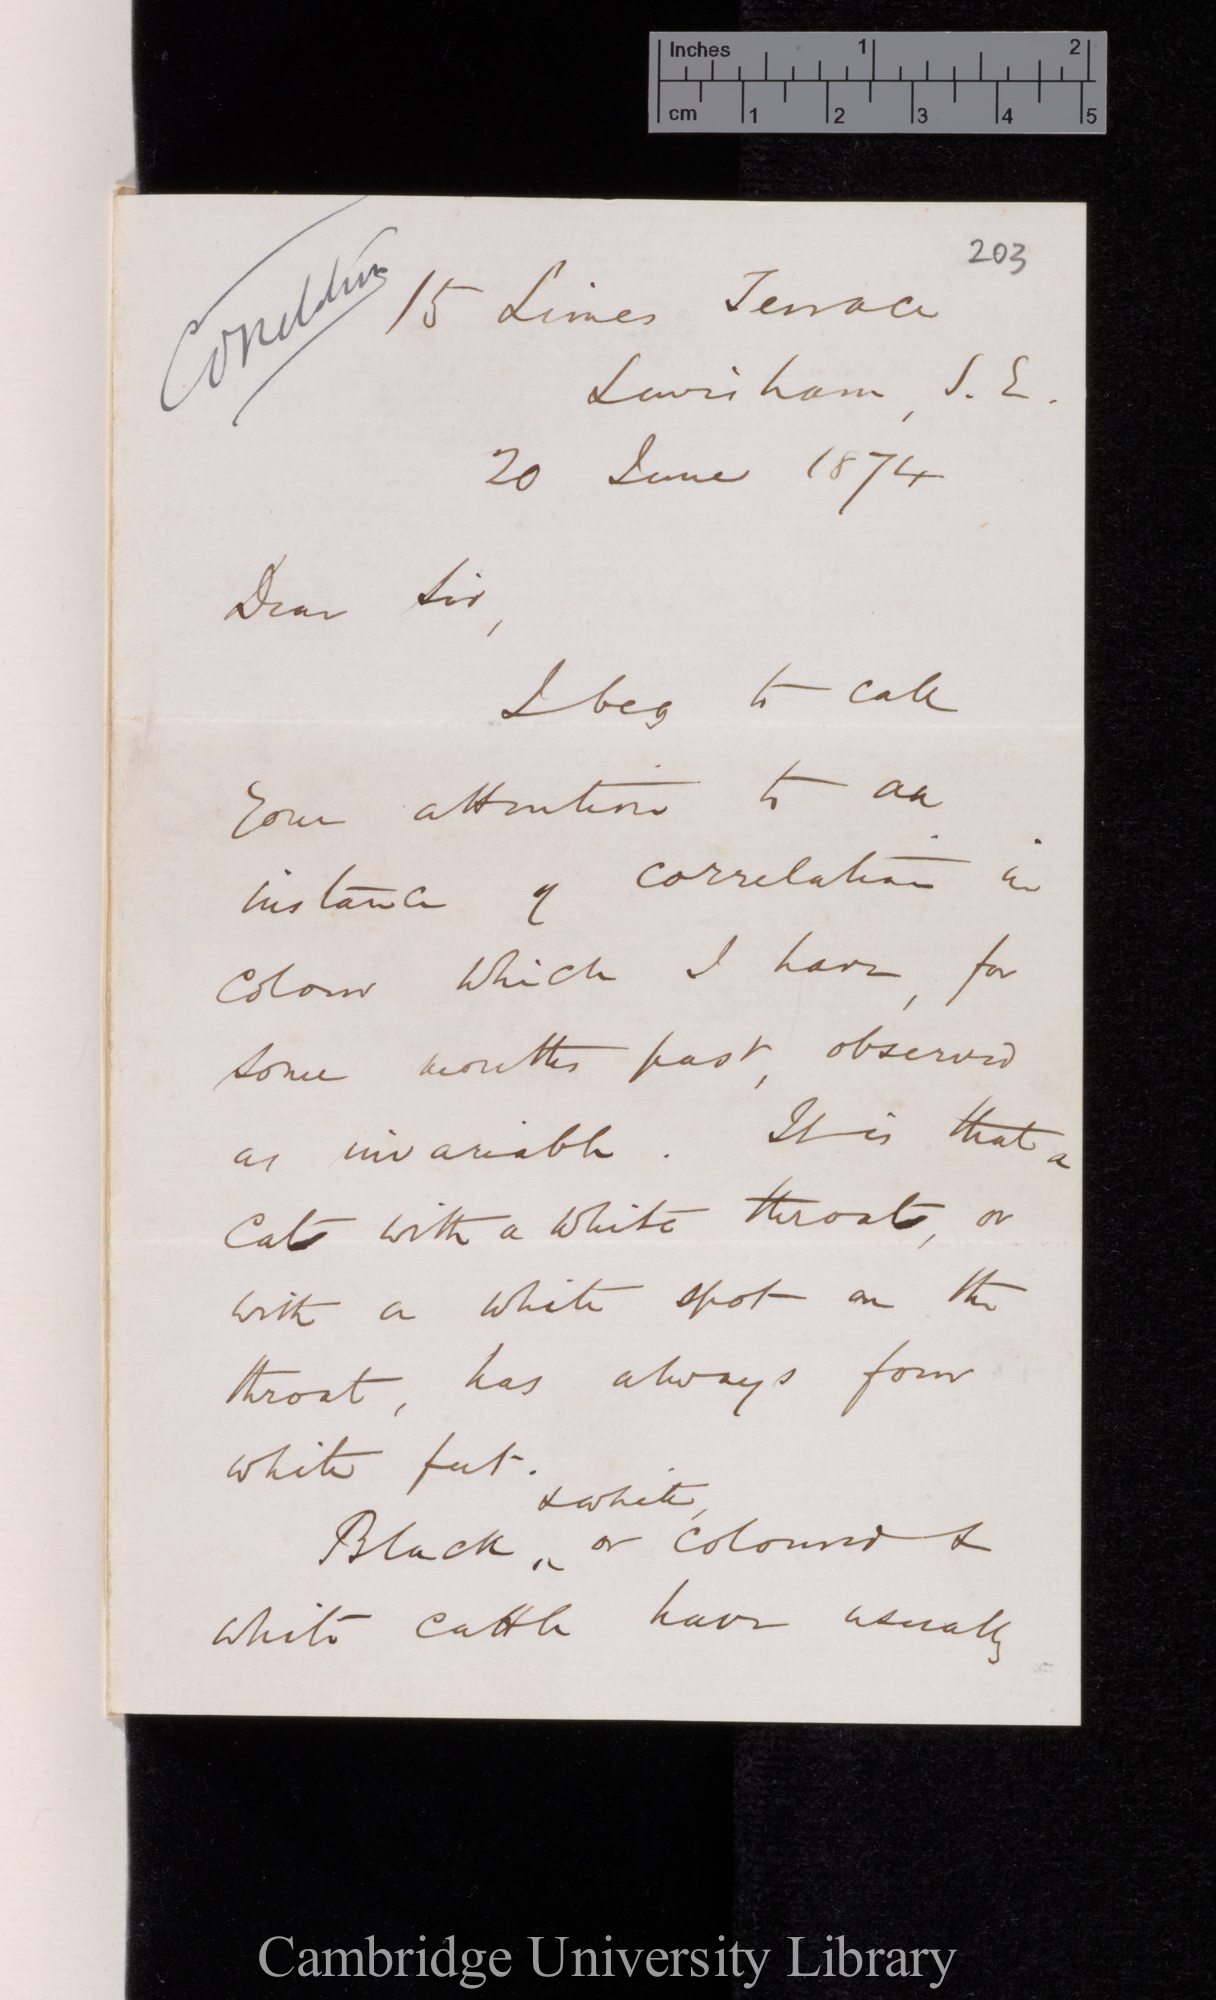 Inches 1 2
cm 1 2 3 4 5
203
Correlation
15 Limes Terrace
Lewisham, S. E.
20 June 1874
Dear Sir,
I beg to call
your attention to an
instance of correlation in
colour which I have, for
some months past, observed
as invariable. It is that a
cat with a white throat, or
with a white spot on the
throat, has always four
white feet.
& white,
Black ‸ or coloured &
white cattle have usually
Cambridge University Library